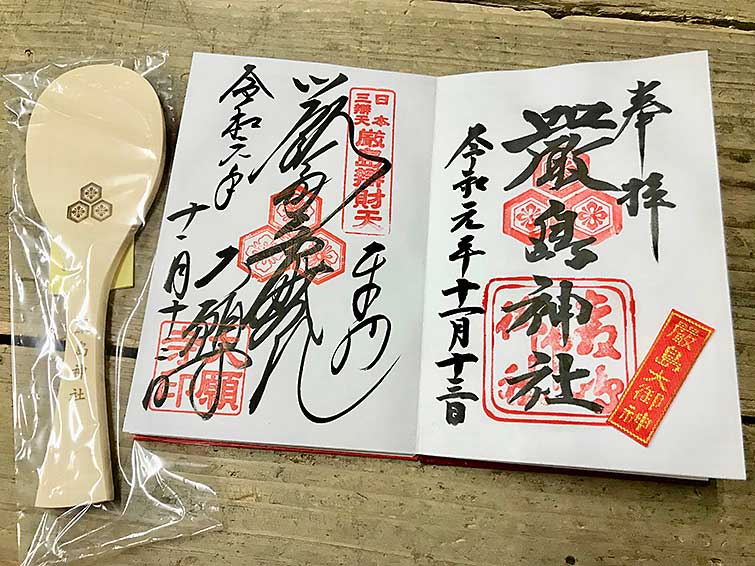 奉拝
嚴島神社
令和元年十一月十三日
嚴島大御神
日本
三辯天
厳島辯財天
令和元年
大願寺
島神社